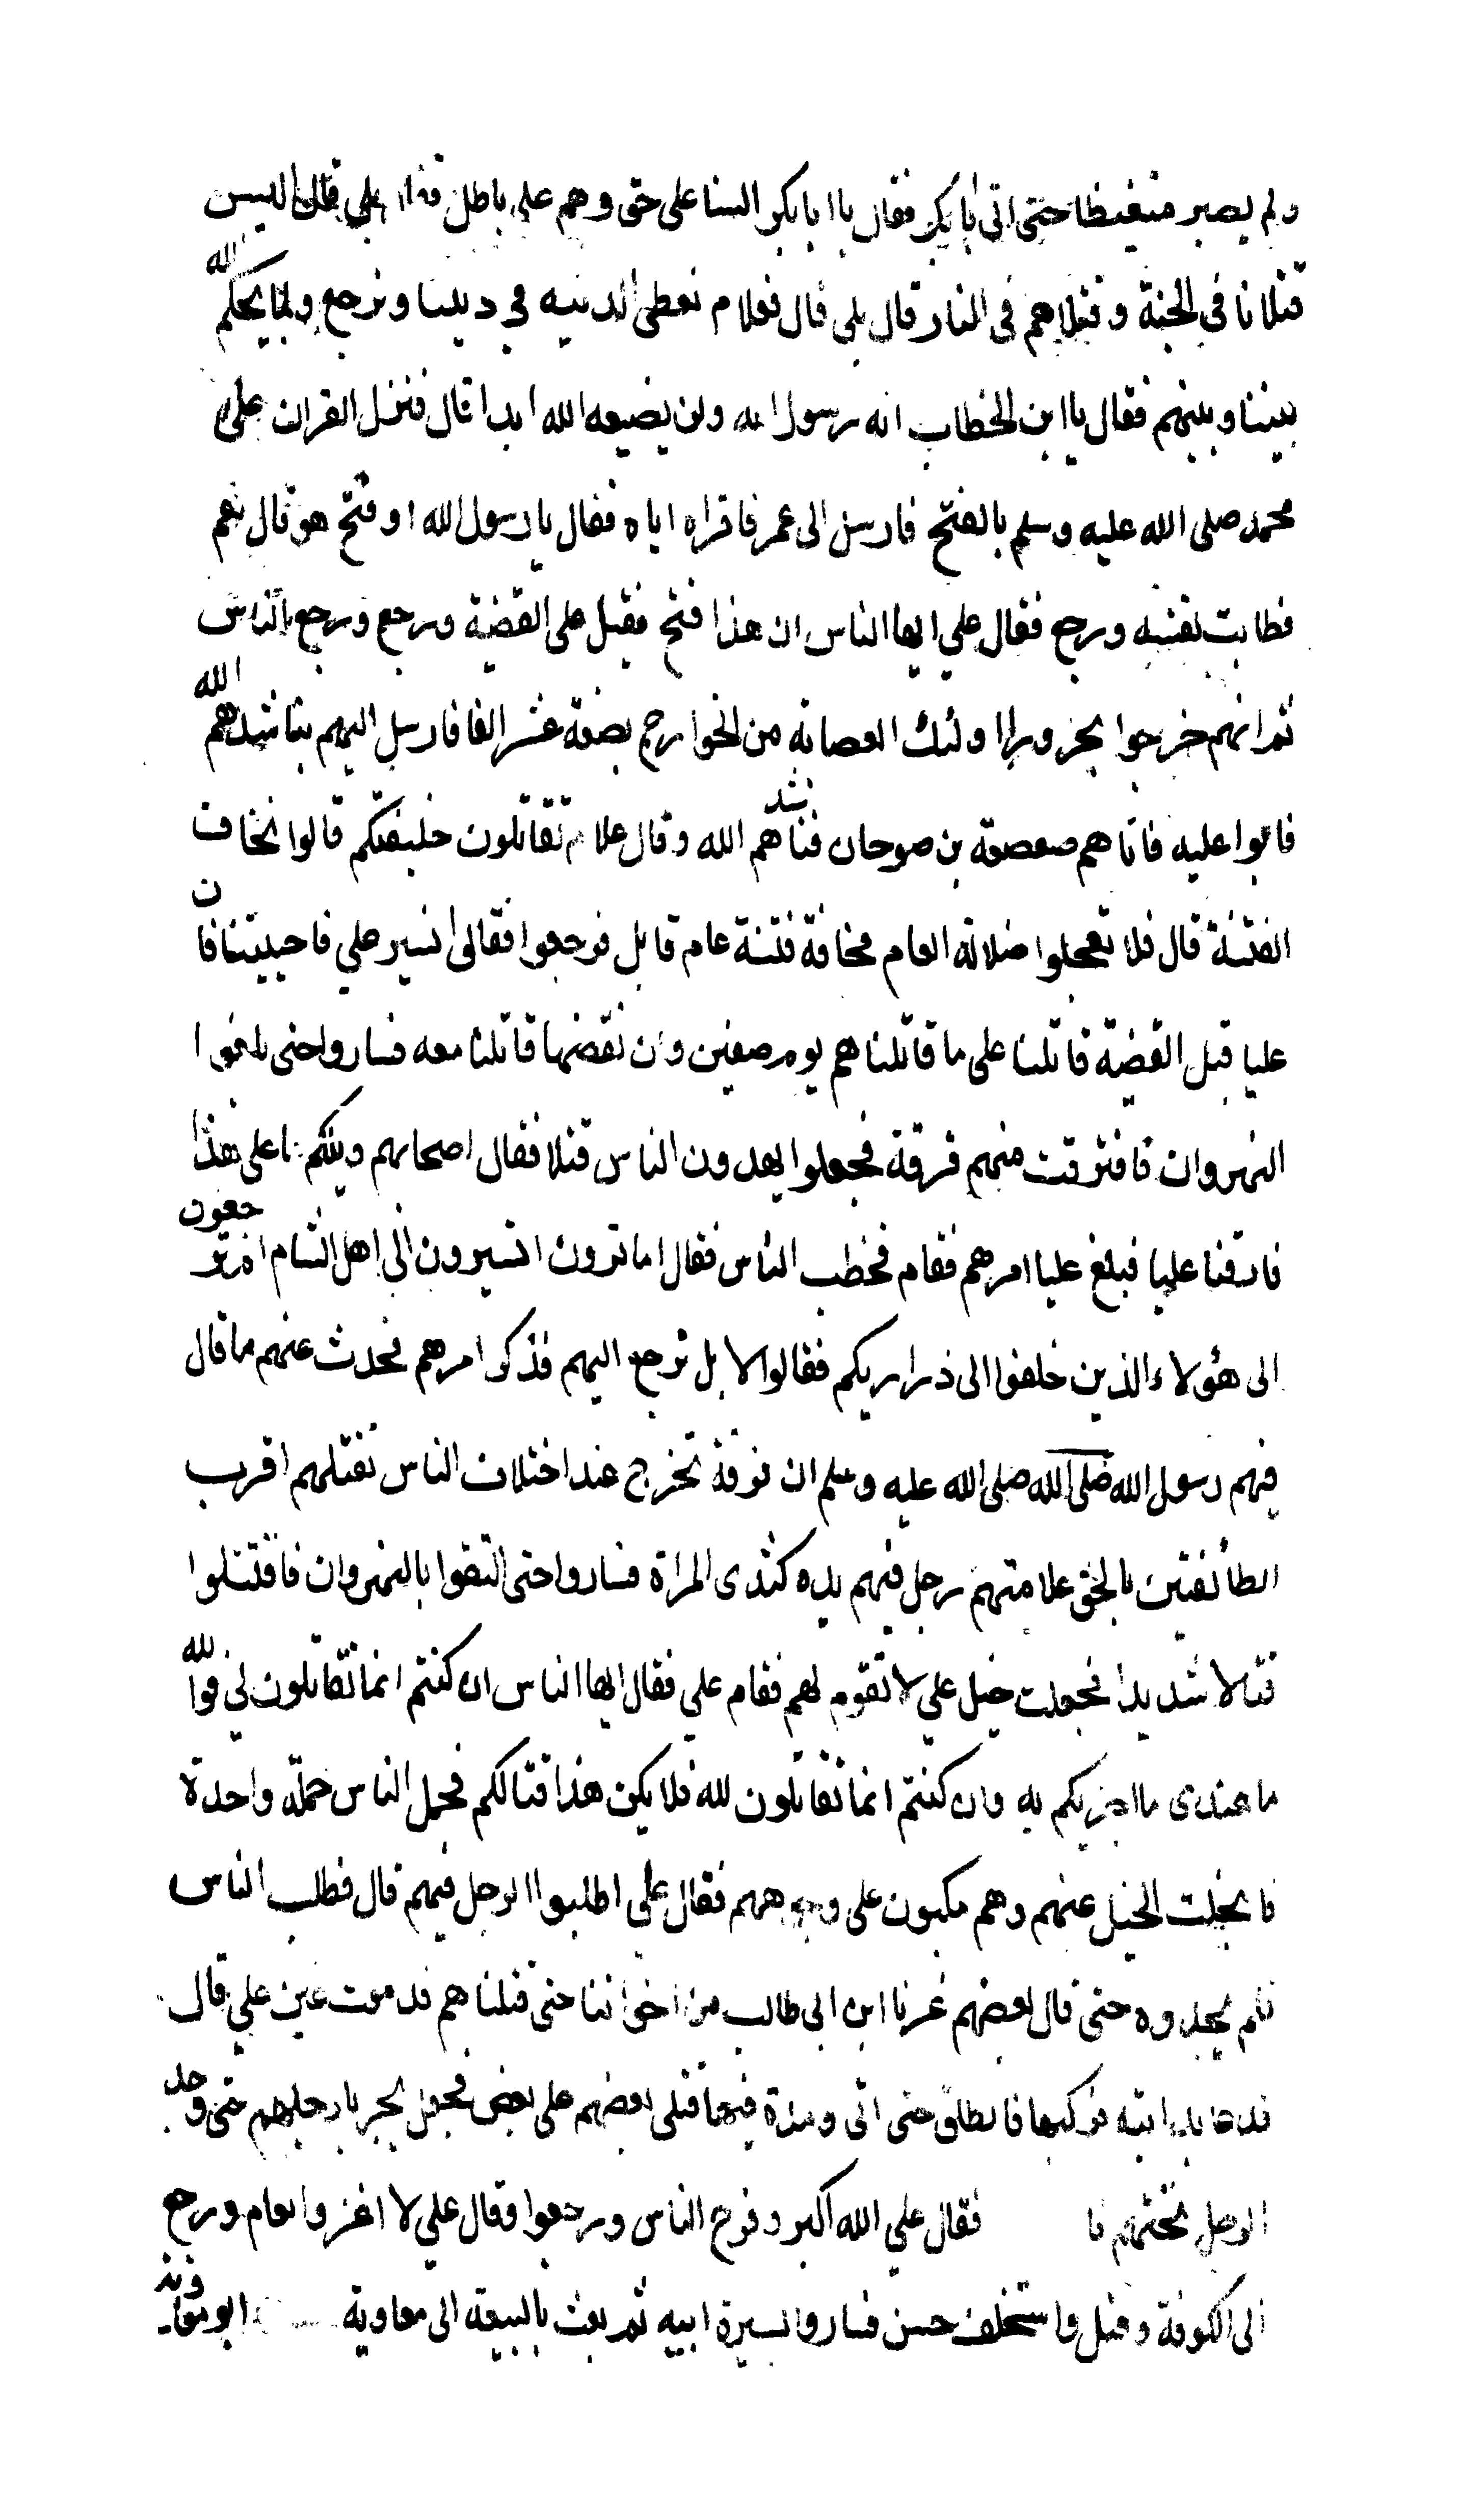 ولم يصبر متغيظا حتى اتى ابا بكر فقال يا ابا بكر السنا على حق وهم على باطل فقال بلى قال اليس
قتلانا في الجنة وقتلاهم في النار قال بلى قال فعلام نعطى الدنيه في ديننا ونرجع ولما يحكم الله
بيننا وبينهم فقال يا ابن الخطاب انه رسول الله ولن يضيعه الله ابدا قال فنزل القران على
محمد صلى الله عليه وسلم بالفتح فارسل الى عمر فاقراه اياه فقال يا رسول الله او فتح هو قال نعم
فطابت نفسه ورجع فقال علي ايها الناس ان هذا فتح فقبل علي القضية ورجع ورجع الناس
ثم انهم خرجوا بحروراا ولئك العصابة من الخوارج بضعة عشر الفا فارسل اليهم يناشدهم الله
فابوا عليه فاتاهم صعصعة بن صوحان فناشدهم الله وقال علام تقاتلون خليفتكم قالوا نخاف
الفتنة قال فلا تعجلوا ضلالة العام مخافة فتنة عام قابل فرجعوا فقالوا نسير على ناحيتنا فان
عليا قبل القضية قاتلنا على ما قاتلناهم يوم صفين وان نقضها قاتلنا معه فساروا حتى بلغوا
النهروان فافترقت منهم فرقة فجعلوا يهدون الناس قتلا فقال اصحابهم ويلكم ما على هذا
فارقنا عليا فبلغ عليا امرهم فقام فخطب الناس فقال اما ترون اتسيرون الى اهل الشام ام ترجعون
الى هؤلاء الذين خلفوا الى ذراريكم فقالوا لا بل نرجع اليهم فذكر امرهم فحدث عنهم ما قال
فيهم رسول الله صلى الله صلى الله عليه وسلم ان فرقة تخرج عند اختلاف الناس تقتلهم اقرب
الطائفتين بالحق علامتهم رجل فيهم يده كثدى المراة فساروا حتى التقوا بالنهروان فاقتتلوا
قتالا شديدا فجعلت خيل علي لا تقوم لهم فقام علي فقال ايها الناس ان كنتم انما تقاتلون لي فوالله
ما عندى ما اجزيكم به وان كنتم انما تقاتلون لله فلا يكن هذا قتالكم فحمل الناس حملة واحدة
فانجلت الخيل عنهم وهم مكبون على وجوههم فقال علي اطلبوا الرجل فيهم قال فطلب الناس
فلم يجدوه حتى قال بعضهم غرنا ابن ابي طالب من اخواننا حتى قتلناهم فدمعت عين علي قال
فدعا بدابته فركبها فانطلق حتى اتى وهدة فيها قتلى بعضهم على بعض فجعل يجر بارجلهم حتى وجد
الرجل تحتهم فا فقال علي الله اكبر وفرح الناس ورجعوا وقال علي لا اغزوا العام ورجع
الى الكوفة وقتل واستخلف حسن فساروا بسيرة ابيه ثم بعث بالبيعة الى معاوية